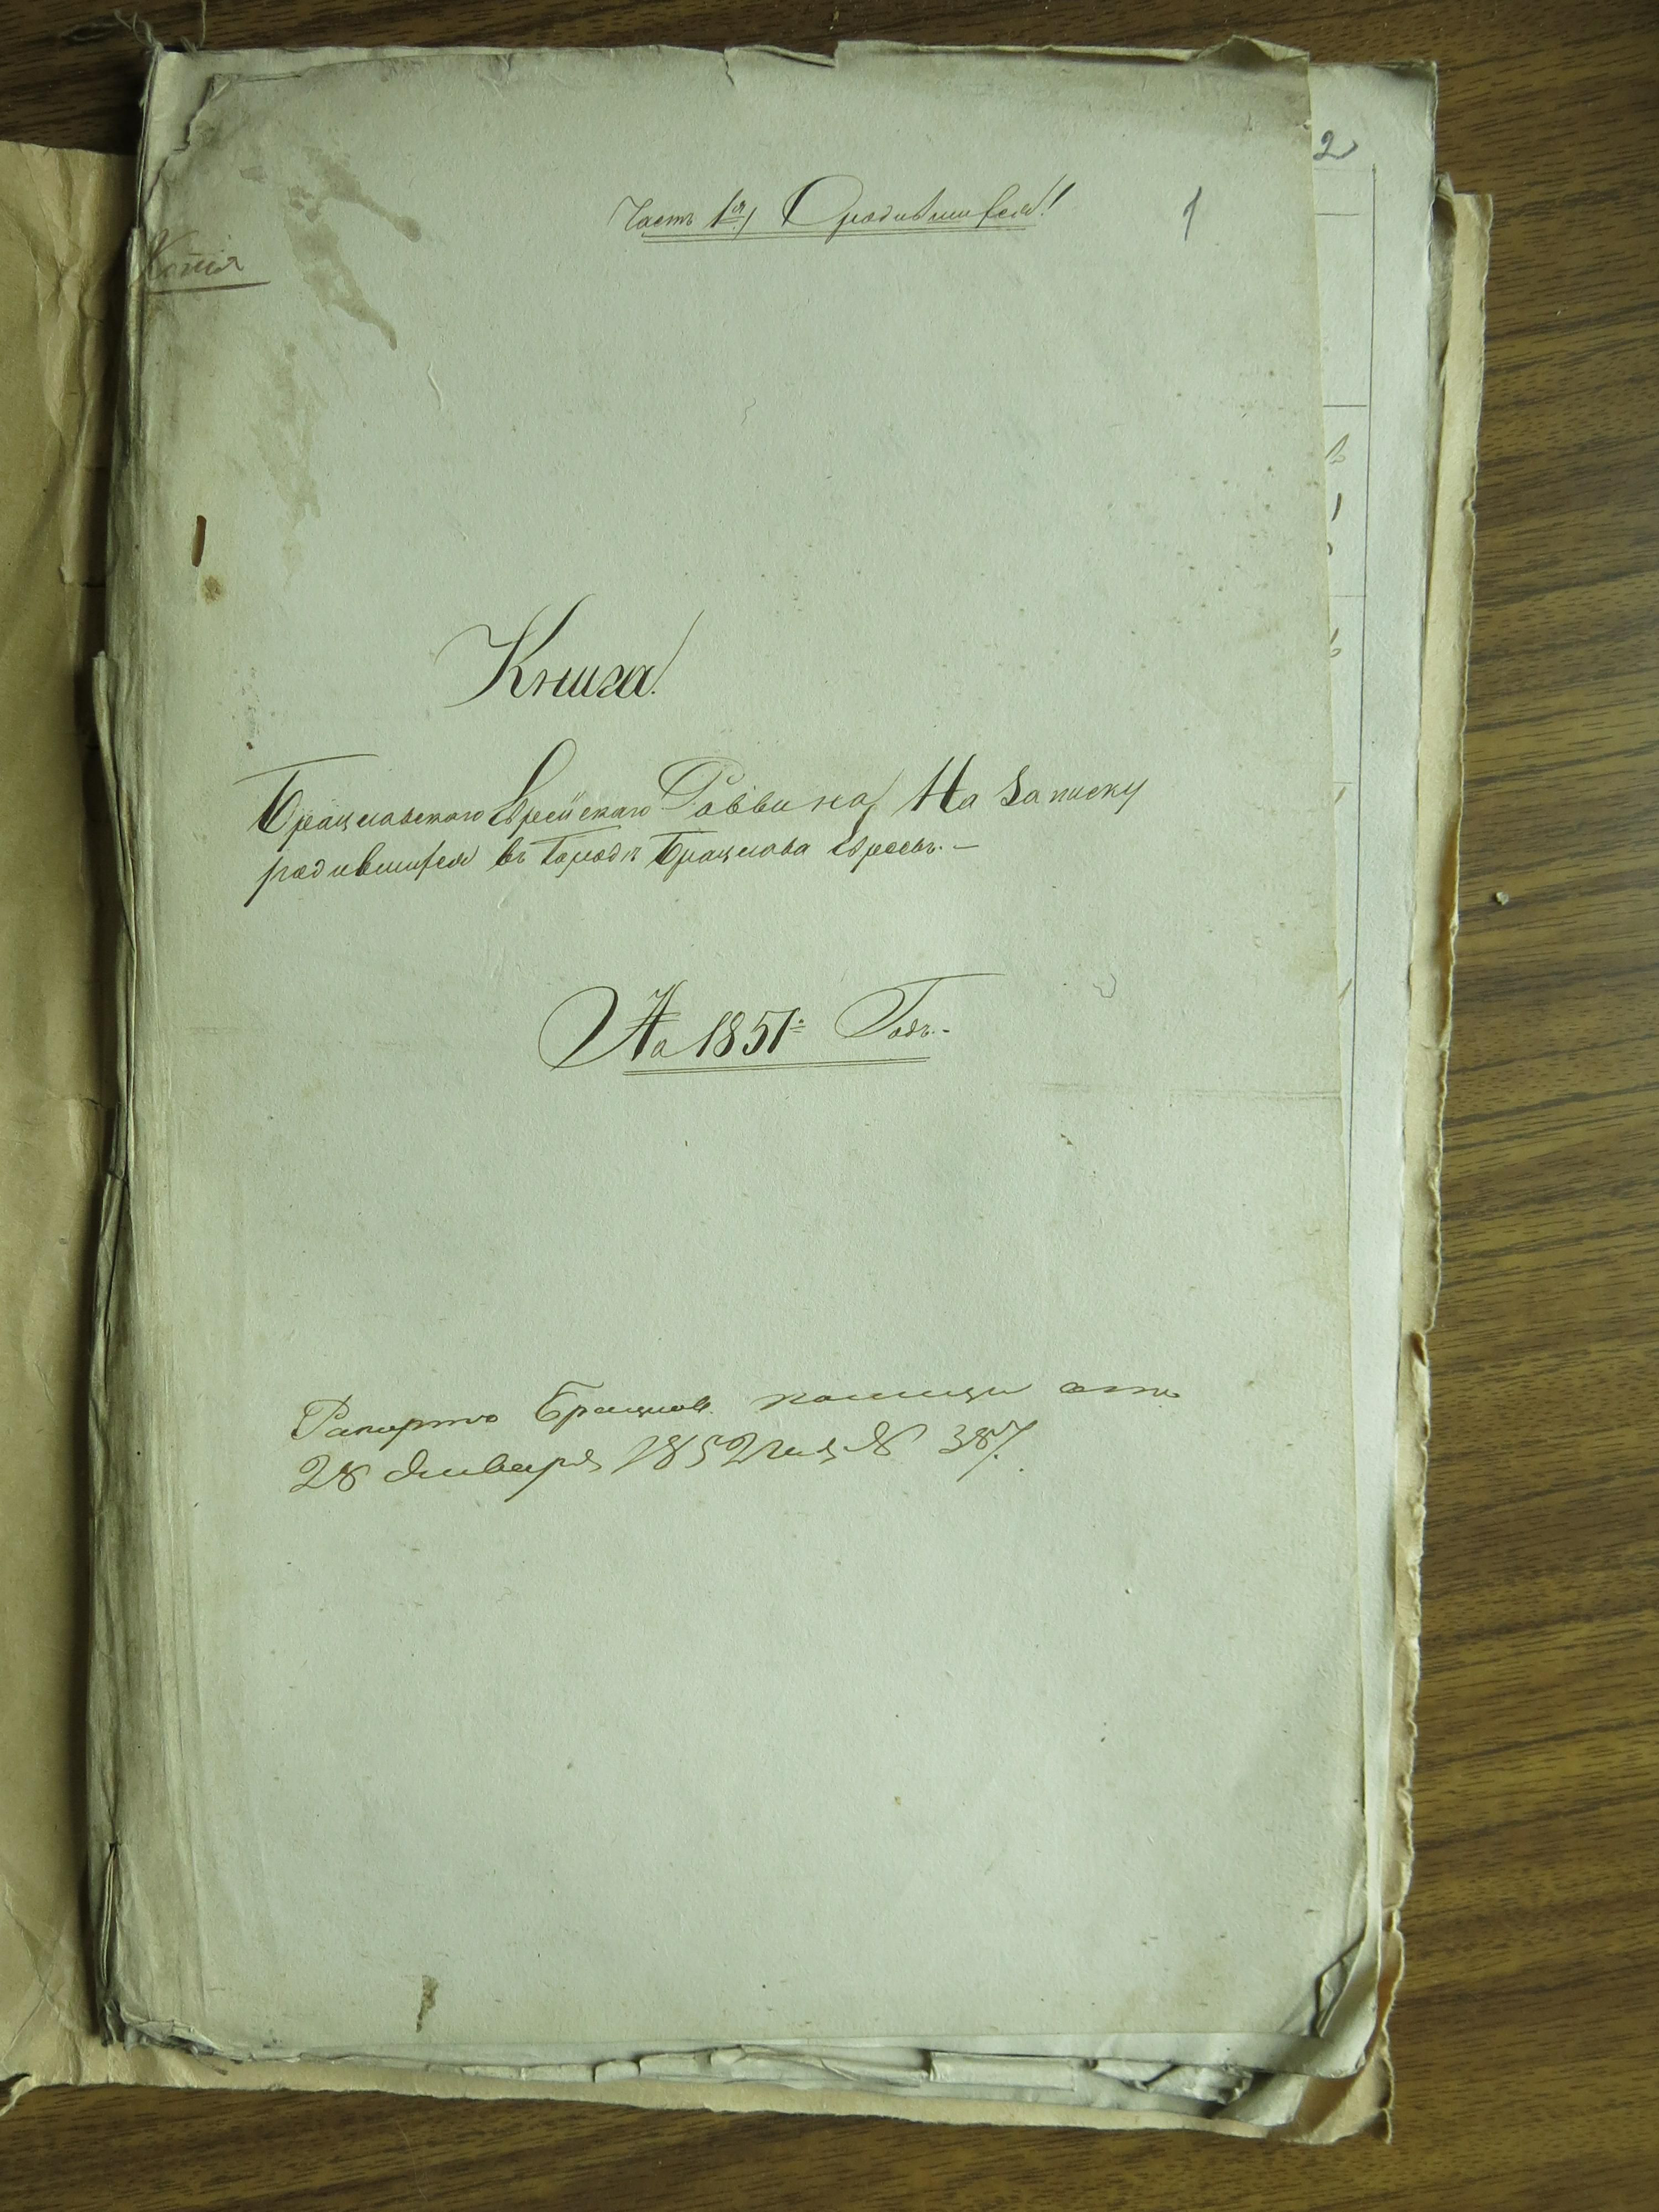 2
Часть 1я, О родившихся!
1
Копія
Книга.
Брацлавского Еврейскаго Раввина, На Записку
родившихся въ Городѣ Брацлава Евреевъ. —
На 1851й Годъ. -
Рапортъ Брацлав. полиціи отъ
28 Января 1852 года № 387.